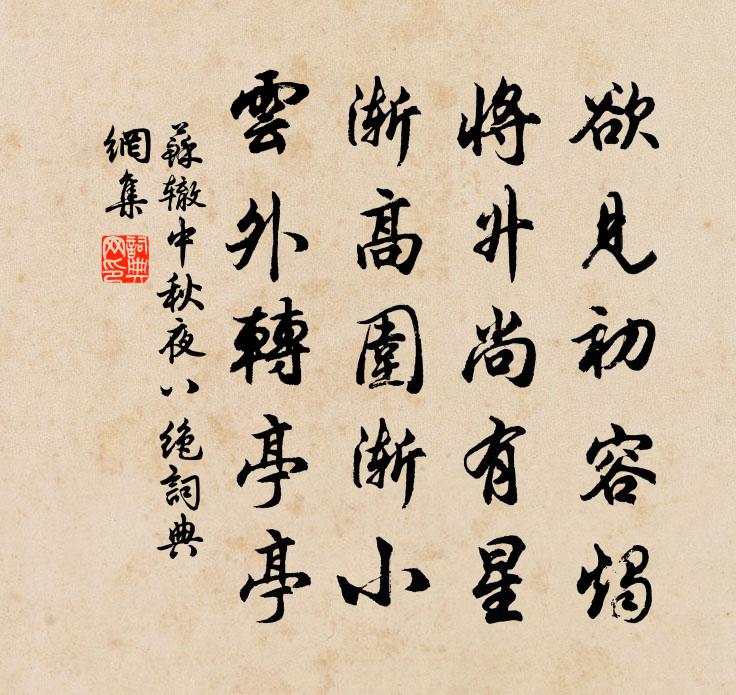 欲見初容燭
將升尚有星
漸高圍漸小
雲外轉亭亭
蘇轍中秋夜八絶詞典
網集
詞典
网印